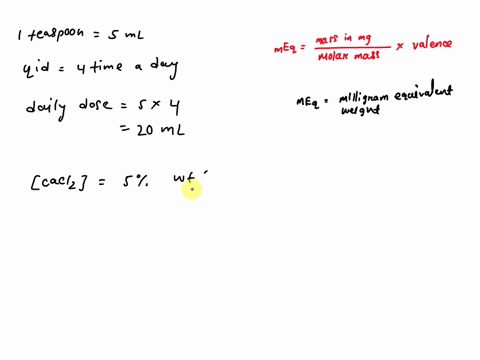 1 teaspoon = 5 mL
qid = 4 time a day
daily dose = 5 × 4
= 20 mL
[CaCl2] = 5% wt
mEq = mass in mg / molar mass × valence
mEq = milligram equivalent
weight